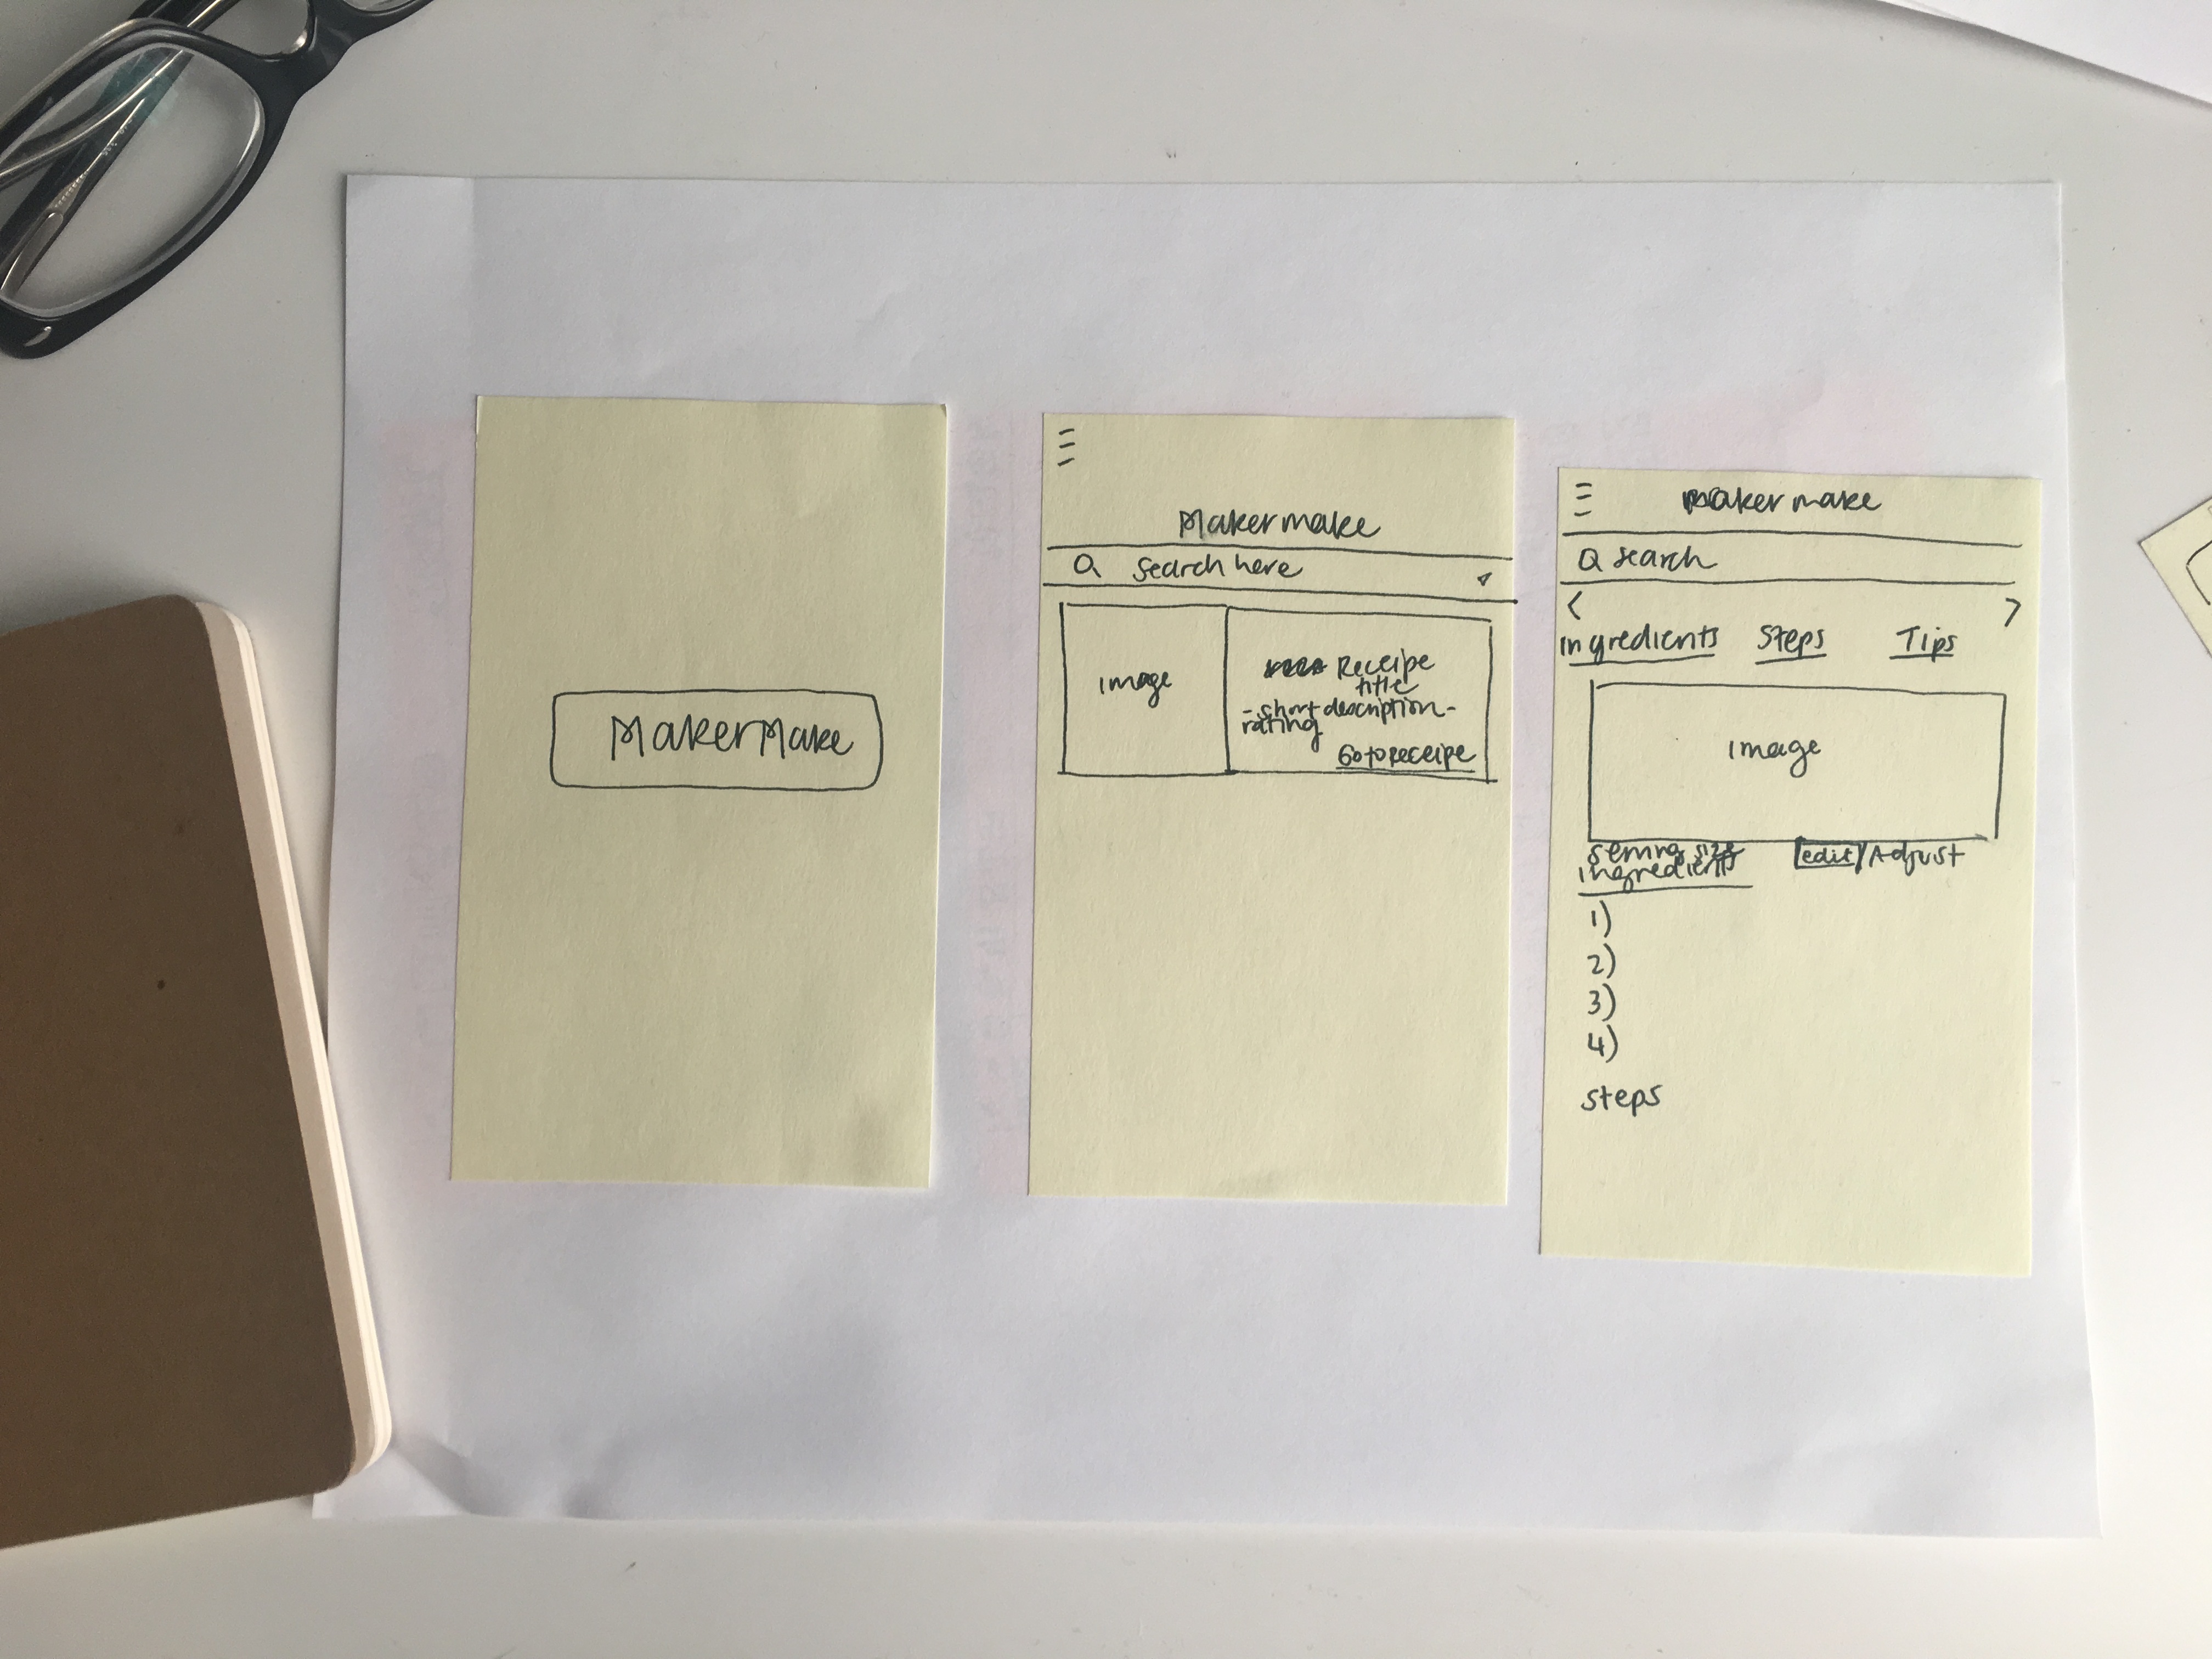 MakerMake
Makermake
Search here
image
Receipe
title
- short description -
rating
Go to receipe
Makermake
search
< >
ingredients Steps Tips
image
serving size edit/Adjust
ingredients
1)
2)
3)
4)
steps